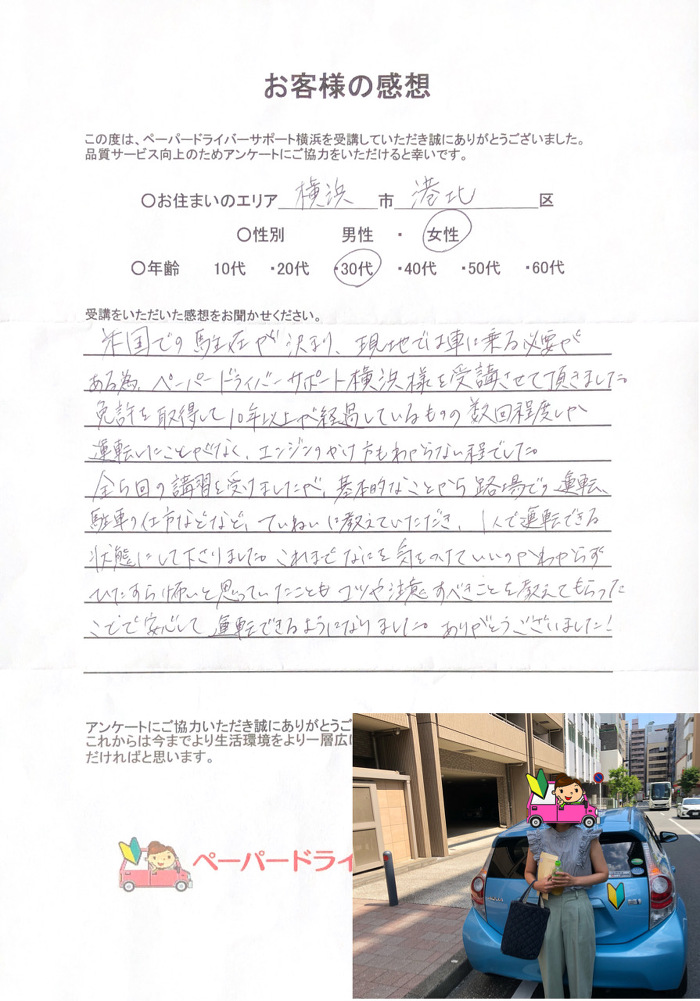 お客様の感想
この度は、ペーパードライバーサポート横浜を受講していただき誠にありがとうございました。
品質サービス向上のためアンケートにご協力をいただけると幸いです。
○お住まいのエリア 横浜 市 港北 区
○性別 男性 ・ 女性
○年齢 10代 ・20代 ・30代 ・40代 ・50代 ・60代
受講をいただいた感想をお聞かせください。
米国での駐在が決まり、現地では車に乗る必要が
ある為、ペーパードライバーサポート横浜様を受講させて頂きました。
免許を取得して10年以上が経過しているものの数回程度しか
運転したことがなく、エンジンのかけ方もわからない程でした。
全5回の講習を受けましたが、基本的なことから路場での運転、
駐車の仕方などなど、ていねいに教えていただき、1人で運転できる
状態にして下さりました。これまでなにを気をつけていいのかわからず
ひたすら怖いと思っていたこともコツや注意すべきことを教えてもらった
ことで安心して運転できるようになりました。ありがとうございました!
アンケートにご協力いただき誠にありがとうご
これからは今までより生活環境をより一層広げ
だければと思います。
ペーパードライ